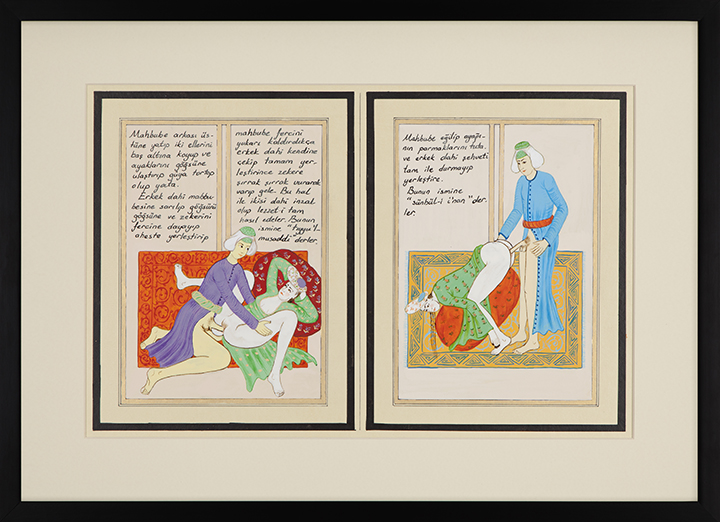 Mahbube arkası üs-
tüne yatıp iki ellerini
baş altına koyup ve
ayaklarını göğsüne
ulaştırıp güya tortop
olup yata.
Erkek dahi mahbu-
besine sarılıp göğsünü
göğsüne ve zekerini
fercine dayayıp
aheste yerleştirip
mahbube fercini
yukarı kaldırdıkça
erkek dahi kendine
çekip tamam yer-
leştirince zekere
şırrak şırrak vurarak
varıp gele. Bu hal
ile ikisi dahi inzal
olup lezzet-i tam
hasıl edeler. Bunun
ismine "tayyu'l-
musaddi" derler.
Mahbube eğilip ayağı-
nın parmaklarını tuta,
ve erkek dahi şehveti
tam ile durmayıp
yerleştire.
Bunun ismine
"sünbül-i i'nan" der-
ler.